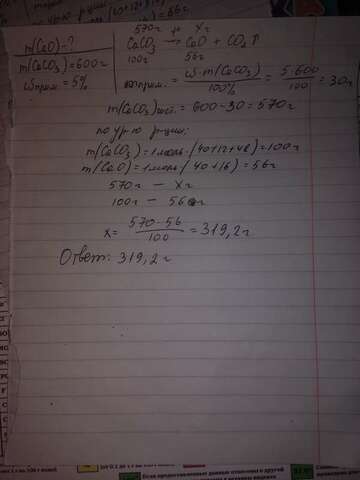 570г хг
m(CaO)-?
m(CaCO3)=600г
ωприм.=5%
CaCO3 → CaO + CO2↑
100г 56г
прим. = ω·m(CaCO3)/100% = 5·600/100 = 30г
m(CaCO3)чист.=600-30=570г
по ур-ю р-ции:
m(CaCO3)=1моль·(40+12+48)=100г
m(CaO)=1моль·(40+16)=56г
570г — хг
100г — 56г
x= 570·56/100 = 319,2г
Ответ: 319,2г